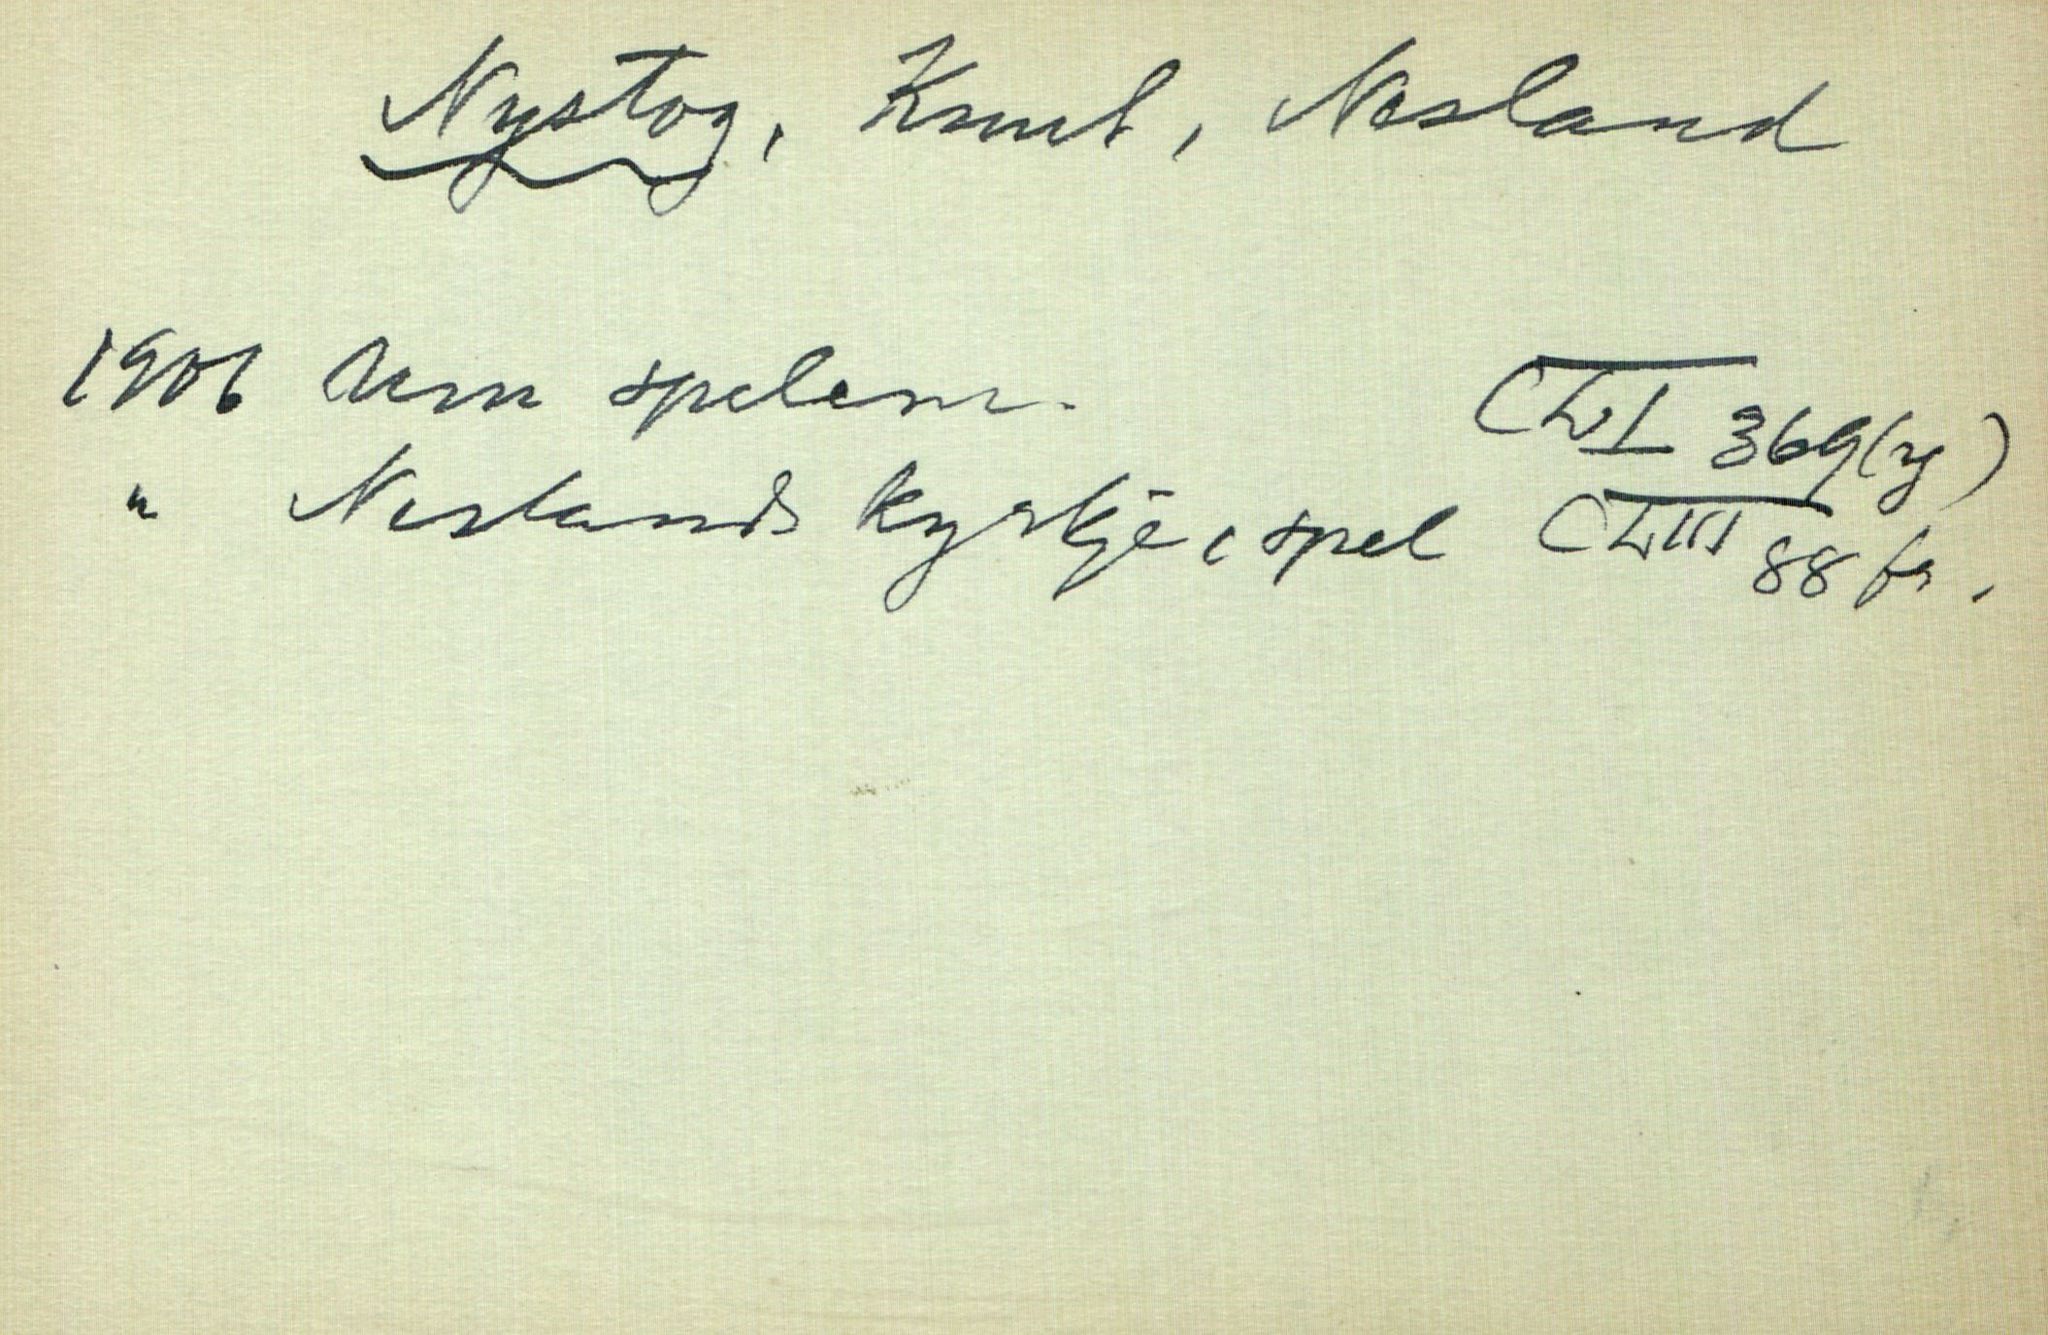 Nystog, Knut, Nesland
1906 Um spelem. CLVI 369(y)
" Neslands kyrkje, spel CLVIII 88 fr.